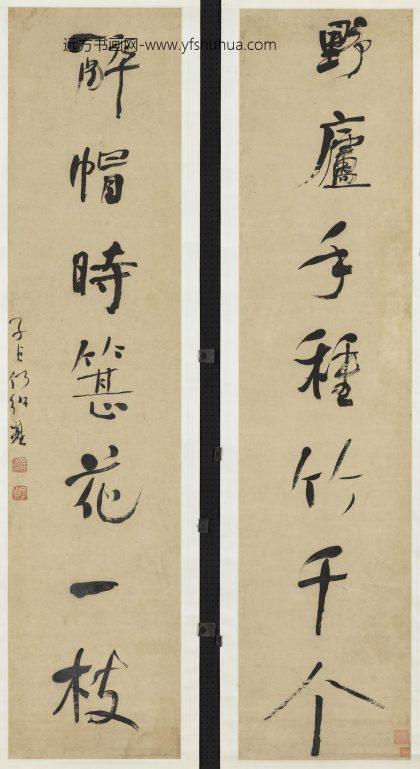 远方书画网-www.yfshuhua.com
野廬手種竹千个
醉帽時簪花一枝
子貞何紹基